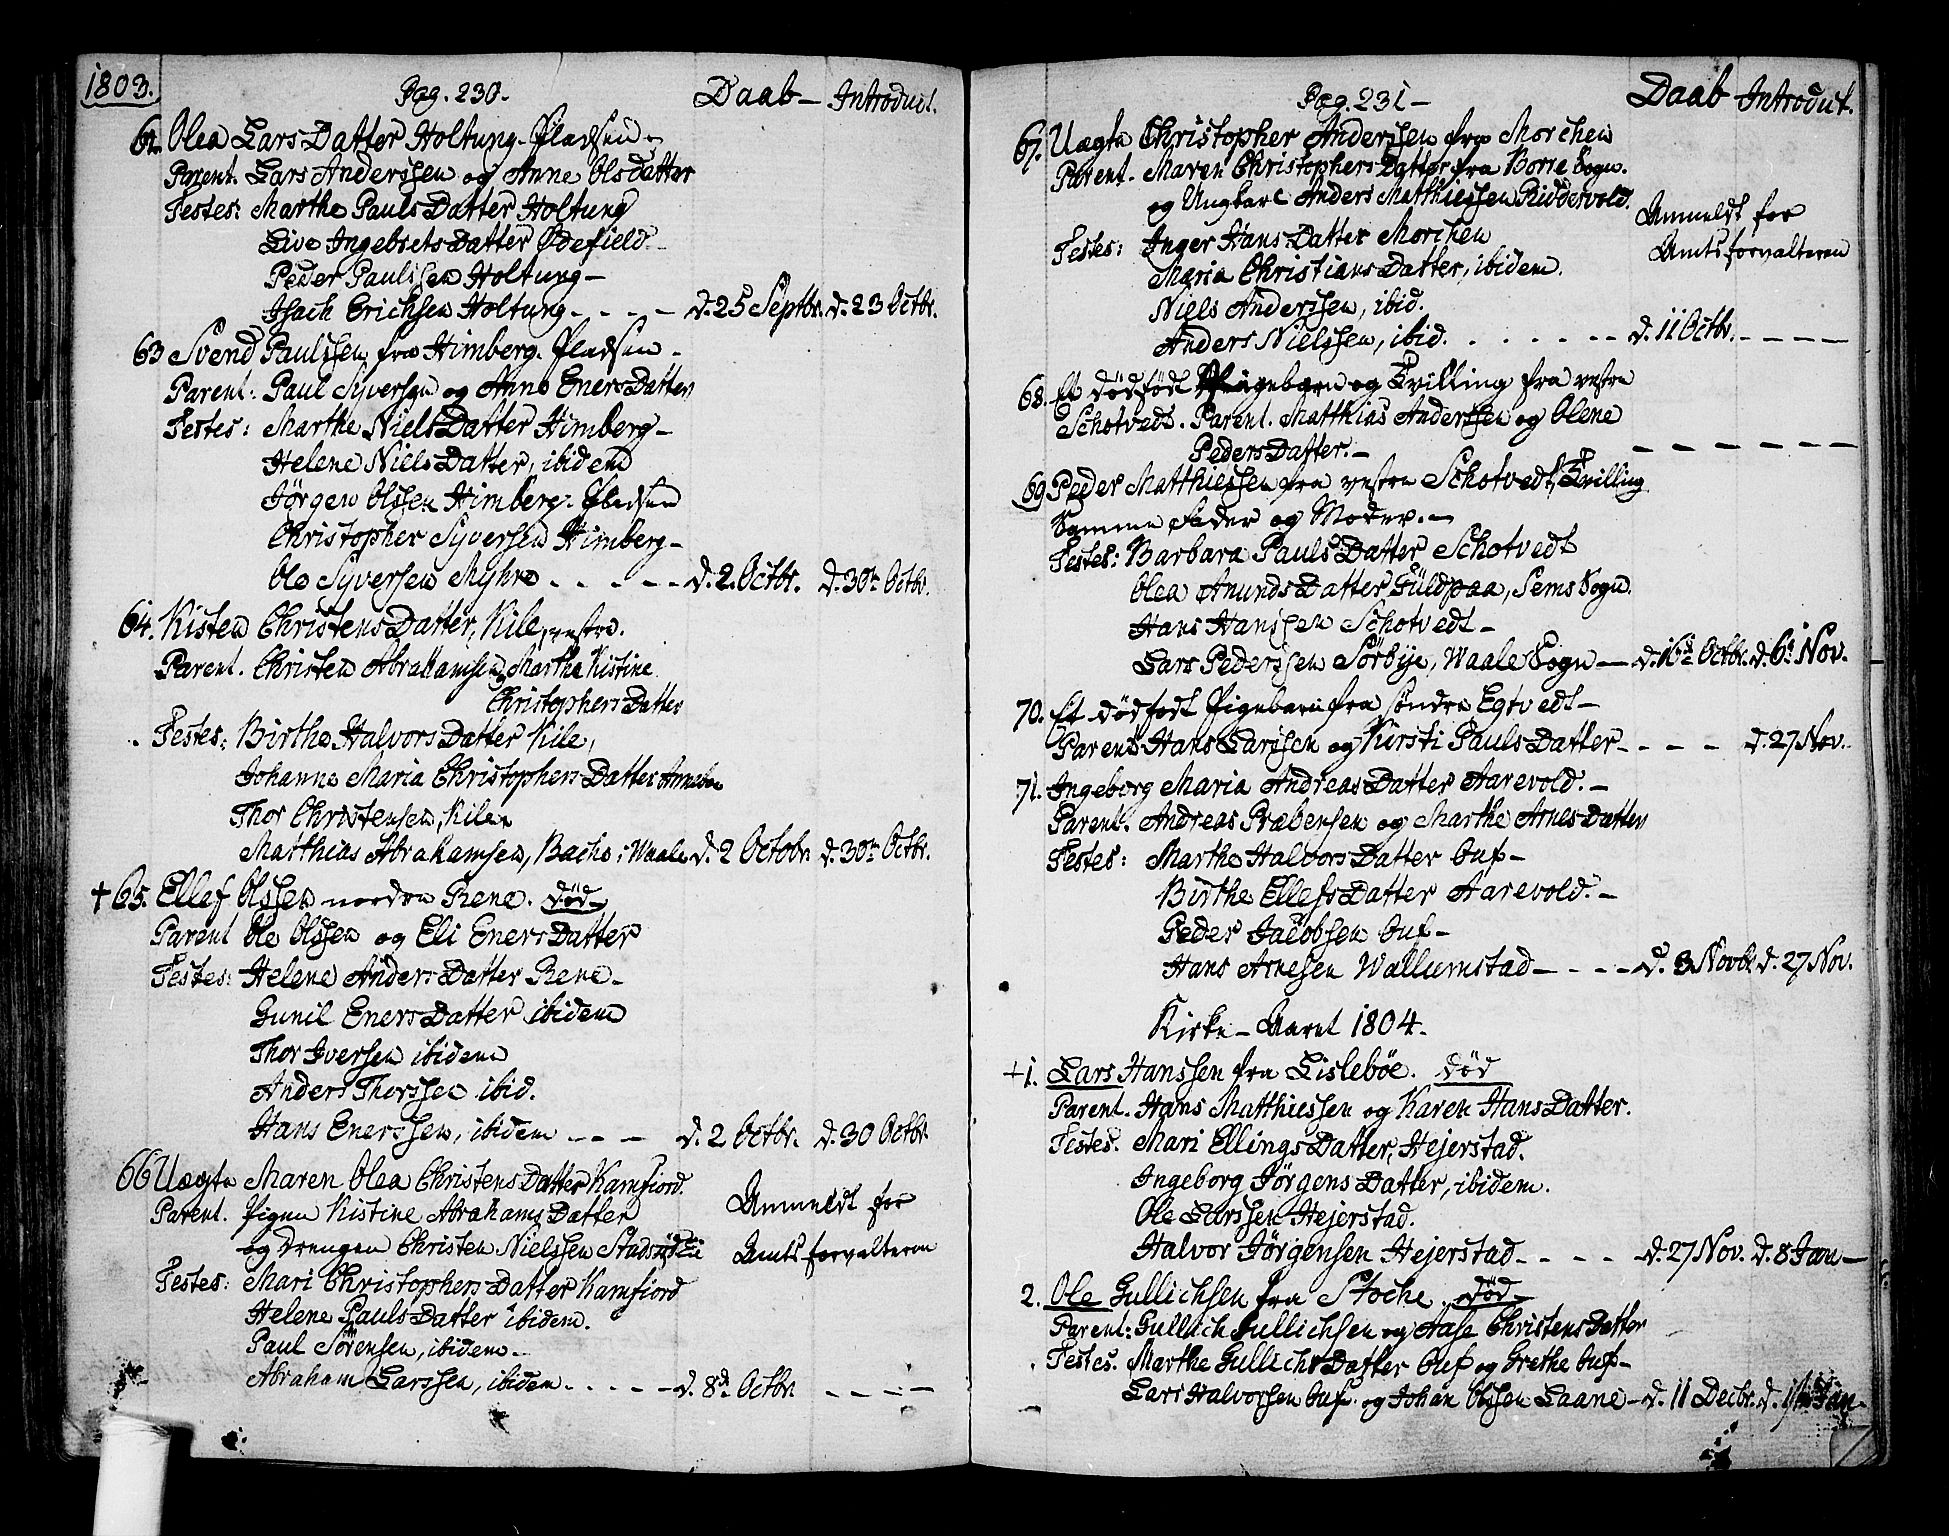 1803.
Pag. 230. Daab - Introduct.
62. Olea Lars Datter Holtung-Pladsen -
Parent. Lars Anderssen og Anne Olsdatter
Testes: Marthe Pauls Datter Holtung
Live Ingebrets Datter Ødefield -
Peder Paulssen Holtung -
Isach Erichsen Holtung - - - - d. 25 Septbr. d. 23 Octbr.
63 Svend Paulssen fra Himberg-Pladsen -
Parent: Paul Syversen og Anne Eners Datter
Testes: Marthe Niels Datter Himberg -
Helene Niels Datter, ibidem
Jörgen Olssen Himberg-Pladsen
Christopher Syversen Himberg -
Ole Syversen Myhre - - - - - d. 2. Octbr. d. 30te Octbr.
64. Kisten Christens Datter, Kile, vestre.
Parent. Christen Abrahamsen og Marthe Kistine
Christophers Datter
Testes: Birthe Halvors Datter Kile,
Johanne Maria Christophers Datter
Thor Christensen, Kile
Matthias Abrahamsen, Bache i Waale d. 2 Octobr. d. 30te Octbr.
+ 65. Ellef Olssen nordre Rene. död -
Parent Ole Olssen og Eli Eners Datter
Testes: Helene Anders Datter Rene -
Gunil Eners Datter ibidem
Thor Iversen ibidem
Anders Thorssen ibid.
Hans Enerssen, ibidem - - - d. 2 Octbr. d. 30 Octbr.
66 Uægte Maren Olea Christens Datter Kamfiord.
Parent. Pigen Kistine Abrahams Datter Anmeldt for
og Drengen Christen Nielssen Amtsforvalteren
Testes: Mari Christophers Datter Kamfiord
Helene Pauls Datter ibidem.
Paul Sörensen, ibidem -
Abraham Larssen, ibidem - - - - - d. 8de Octbr - - - -
Pag. 231 - Daab Introduct.
67. Uægte Christopher Anderssen fra Morchen
Parent. Maren Christophers Datter fra Borre Sogn.
og Ungkarl Anders Matthiessen Riddervold. Anmeldt for
Testes: Inger Hans Datter Morchen Amtsforvalteren
Maria Christians Datter, ibidem.
Niels Anderssen, ibid.
Anders Nielssen, ibid. - - - - - - d. 11 Octbr. - - - -
68. Et dödfödt Pigebarn og Tvilling fra vestre
Schotvedt. Parent. Matthias Anderssen og Olene
Peders Datter. - - - - - - -
69 Peder Matthiessen fra vestre Schotvedt, Tvilling
Samme Fader og Moder. -
Testes: Barbara Pauls Datter Schotvedt
Olea Anunds Datter Güldpaa, Sems Sogn.
Hans Hanssen Schotvedt -
Lars Pederssen Sörbye, Waale Sogn - d. 16de Octbr. d. 6te Nov.
70. Et dödfödt Pigebarn fra söndre Egtvedt -
Parent. Hans Larssen og Kirsti Pauls Datter - - - - d. 27 Nov.
71. Ingeborg Maria Andreas Datter Aarevold. -
Parent. Andreas Præbensen og Marthe Arnes Datter
Testes: Marthe Halvors Datter Auf -
Birthe Ellefs Datter Aarevold. -
Peder Jacobsen Auf -
Hans Arnesen Wallumstad - - - - d. 3 Novbr. d. 27 Nov.
Kirke - Aaret 1804.
+ 1. Lars Hanssen fra Lislebøe. död
Parent. Hans Matthiessen og Karen Hans Datter.
Testes. Mari Ellings Datter, Hejerstad.
Ingeborg Jörgens Datter, ibidem.
Ole Larssen Hejerstad.
Halvor Jörgensen Hejerstad - - - - d. 27 Nov. d. 8 Jan -
2. Ole Gullichsen fra Stoche. död -
Parent: Gullich Gullichsen og Aase Christens Datter
Testes. Marthe Gullichs Datter Auf og Grethe Auf -
Lars Halvorssen Auf og Johan Olssen Laane - d. 11 Decbr. d. Jan -